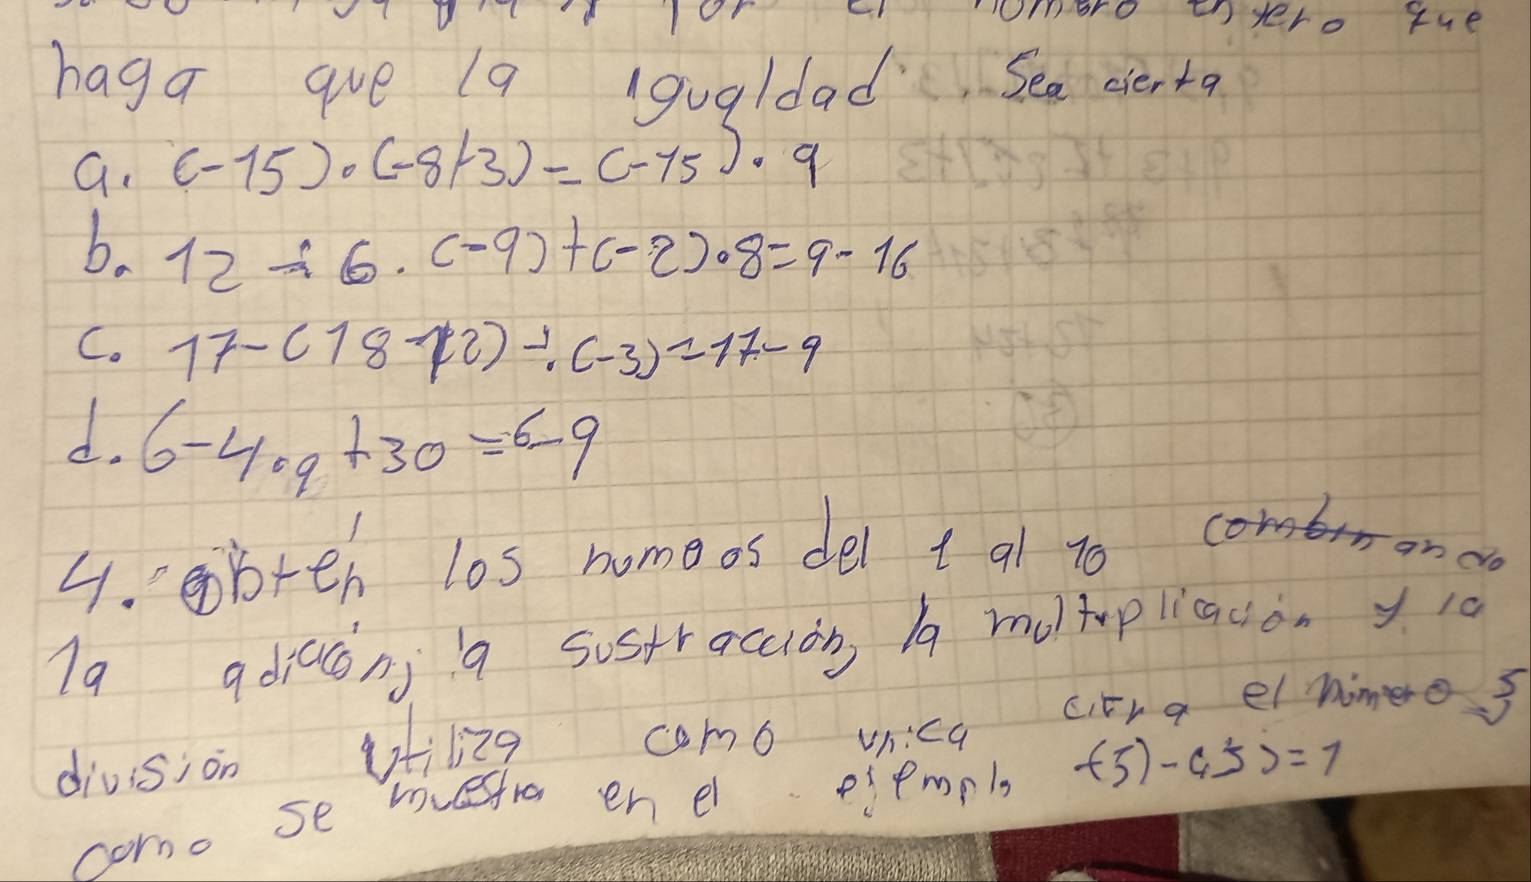 por el número entero que
haga que la igualdad. Sea cierta
a. (-15)·(-8+3)=(-15)·a
b. 12÷6·(-9)+(-2)·8=a-16
c. 17-(18-12)÷(-3)=17-a
d. 6-4·a+30=6-a
4. obtén los numeos del 1 al 10 combinando
la adición, la sustracción, la multiplicación y la
división Utiliza como unica cifra el número 5
como se muestra en el ejemplo